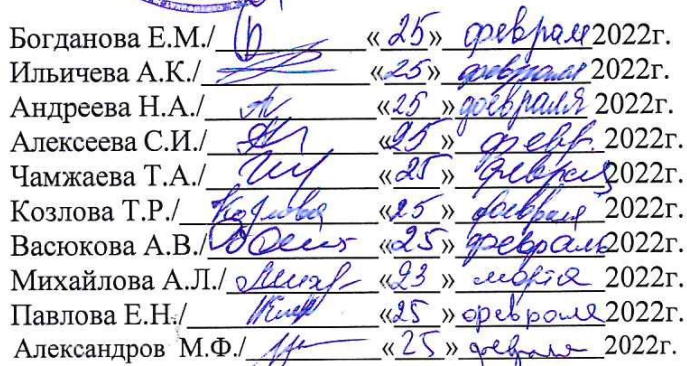 Богданова Е.М./ «25» феврал 2022г.
Ильичева А.К./ «25» февраля 2022г.
Андреева Н.А./ «25» февраля 2022г.
Алексеева С.И./ «25» февр. 2022г.
Чамжаева Т.А./ «25» февраля 2022г.
Козлова Т.Р./ Козлова «25» февраля 2022г.
Васюкова А.В./ «25» февраль 2022г.
Михайлова А.Л./ «23» марта 2022г.
Павлова Е.Н./ «25» февраля 2022г.
Александров М.Ф./ «25» февраля 2022г.